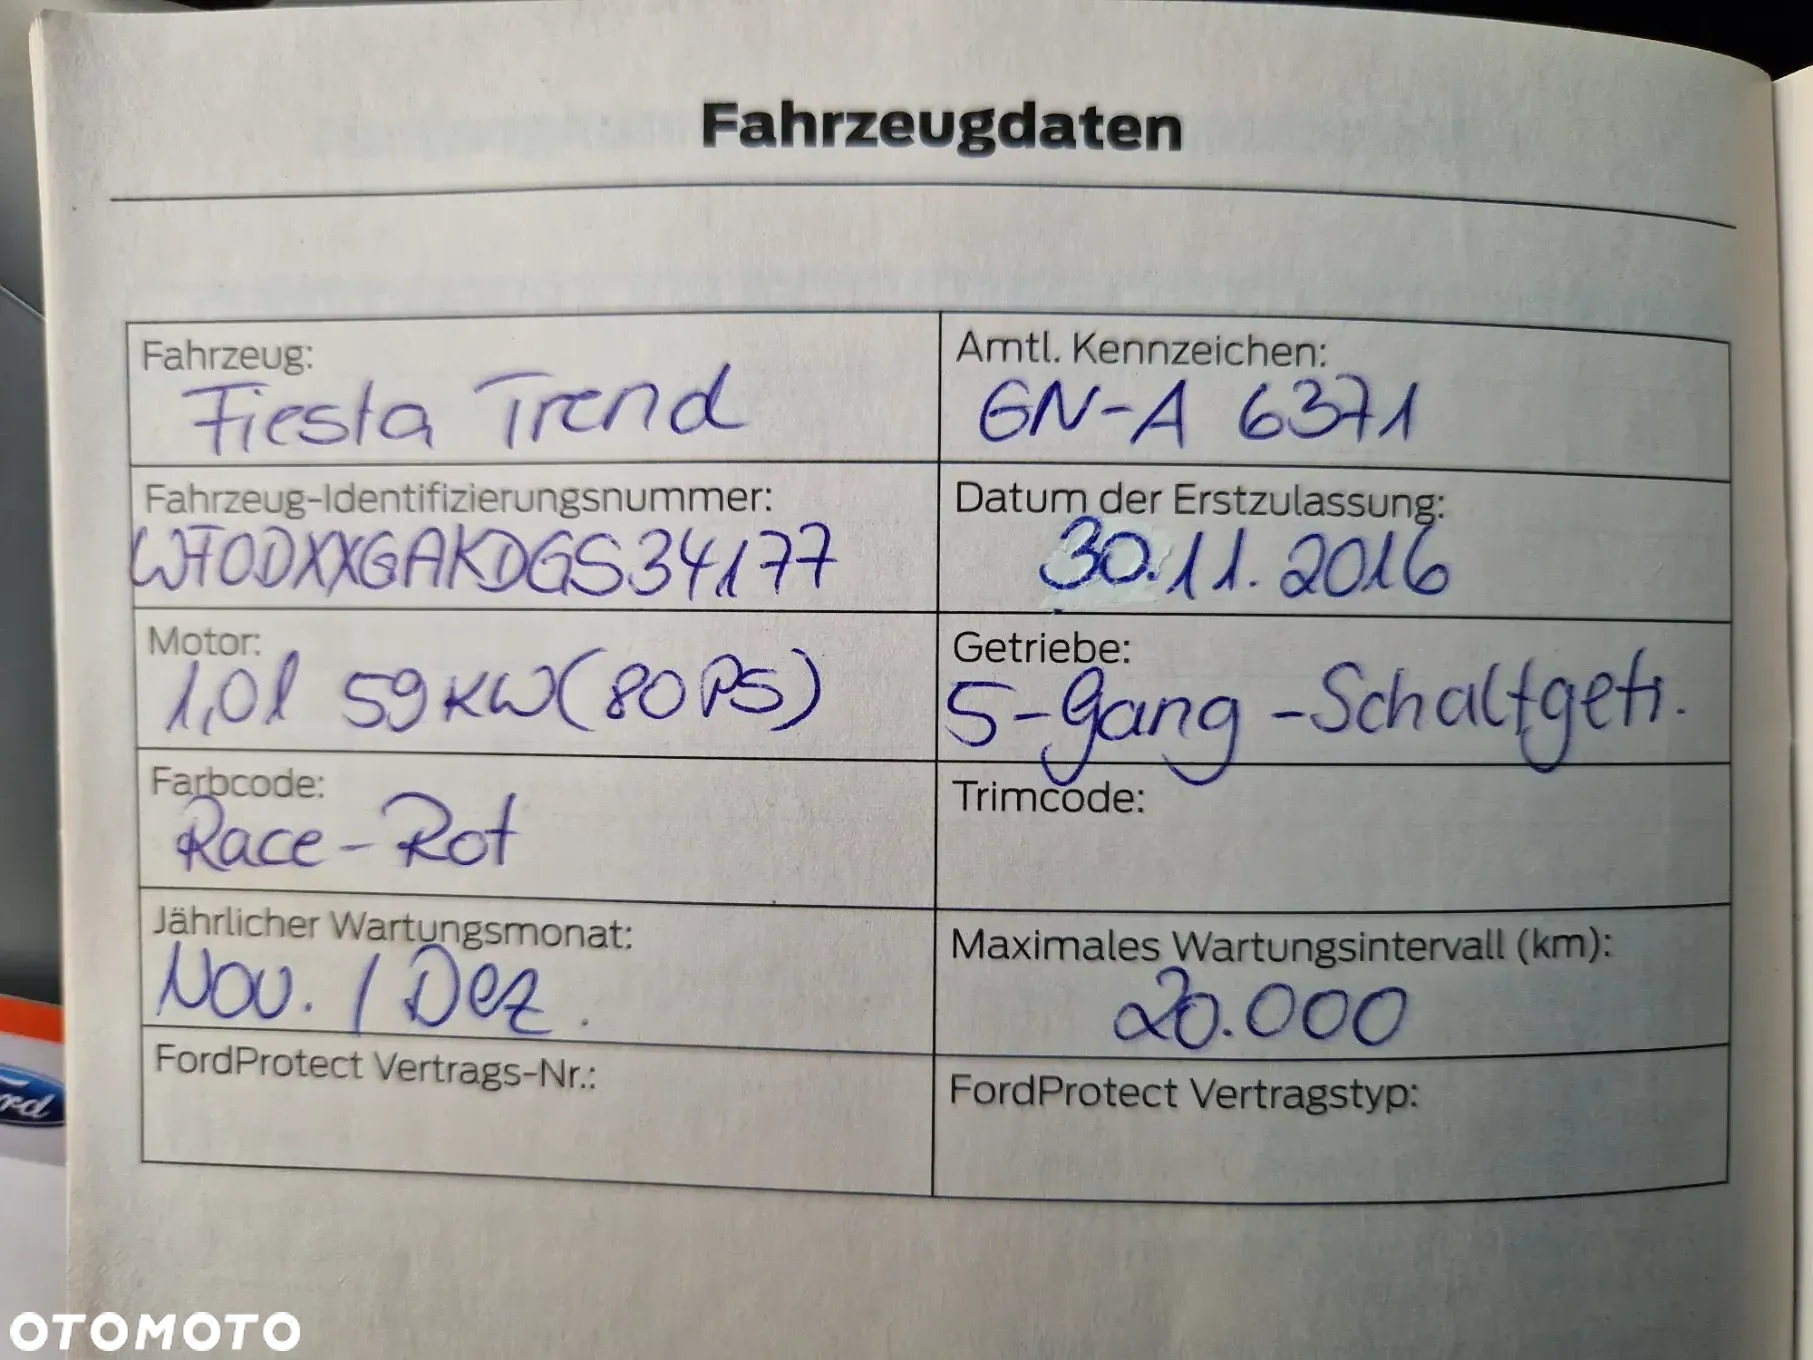 Fahrzeugdaten
Fahrzeug:
Fiesta Trend
Amtl. Kennzeichen:
GN-A 6371
Fahrzeug-Identifizierungsnummer:
WF0DXXGAKDGS34177
Datum der Erstzulassung:
30.11.2016
Motor:
1,0l 59KW(80PS)
Getriebe:
5-Gang-Schaltgetr.
Farbcode:
Race-Rot
Trimcode:
Jährlicher Wartungsmonat:
Nov. / Dez.
Maximales Wartungsintervall (km):
20.000
FordProtect Vertrags-Nr.:
FordProtect Vertragstyp:
rd
OTOMOTO